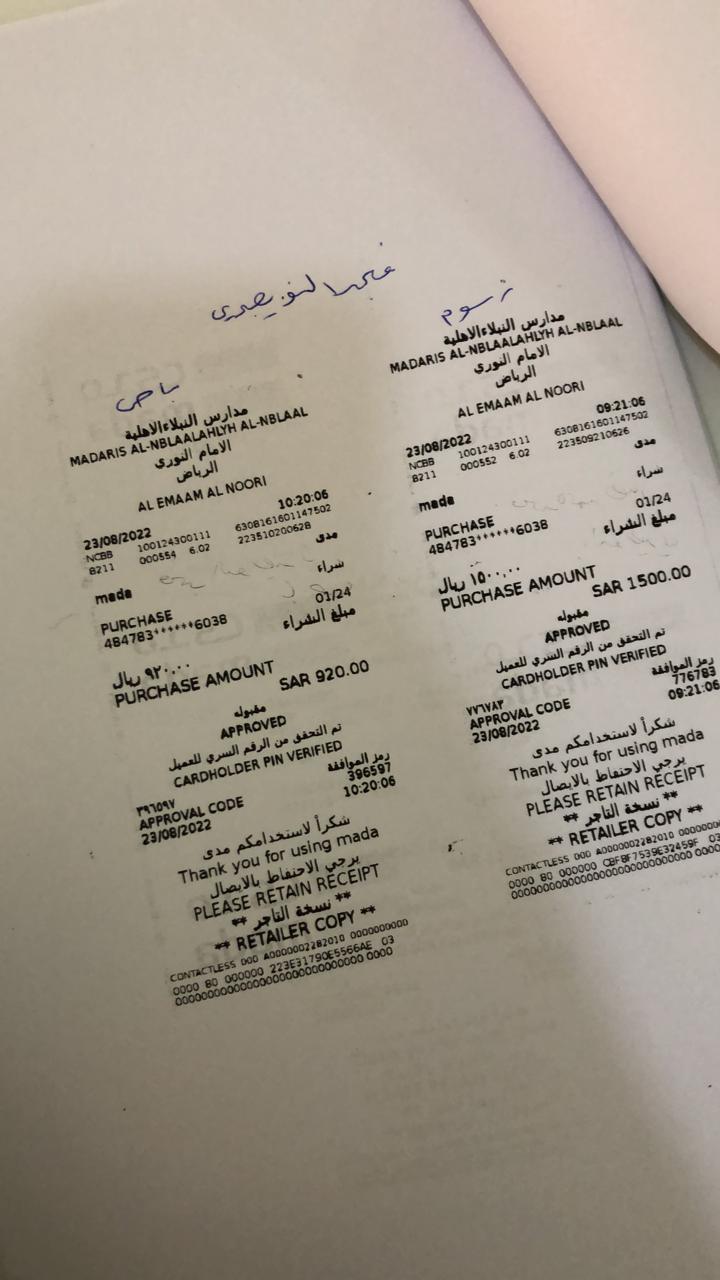 باص
مدارس النبلاءالاهلية
MADARIS AL-NBLAALAHLYH AL-NBLAAL
الامام النوري
الرياض
AL EMAAM AL NOORI
23/08/2022 10:20:06
NCBB 100124300111 6308161601147502
8211 000554 6.02 223510200628
مدى
mada
شراء
PURCHASE 01/24
484783******6038 مبلغ الشراء
٩٢٠.٠٠ ريال
PURCHASE AMOUNT
SAR 920.00
مقبوله
APPROVED
تم التحقق من الرقم السري للعميل
CARDHOLDER PIN VERIFIED
رمز الموافقة
٣٩٦٥٩٧ 396597
APPROVAL CODE
23/08/2022 10:20:06
شكراً لاستخدامكم مدى
Thank you for using mada
يرجي الاحتفاظ بالايصال
PLEASE RETAIN RECEIPT
** نسخة التاجر **
** RETAILER COPY **
CONTACTLESS 000 A0000002282010 0000000000
0000 80 000000 223E31790E5566AE 03
رسوم
مدارس النبلاءالاهلية
MADARIS AL-NBLAALAHLYH AL-NBLAAL
الامام النوري
الرياض
AL EMAAM AL NOORI
23/08/2022 09:21:06
NCBB 100124300111 6308161601147502
8211 000552 6.02 223509210626
مدى
mada
شراء
PURCHASE 01/24
484783******6038 مبلغ الشراء
١٥٠٠.٠٠ ريال
PURCHASE AMOUNT
SAR 1500.00
مقبوله
APPROVED
تم التحقق من الرقم السري للعميل
CARDHOLDER PIN VERIFIED
رمز الموافقة
٧٧٦٧٨٣ 776783
APPROVAL CODE
23/08/2022 09:21:06
شكراً لاستخدامكم مدى
Thank you for using mada
يرجي الاحتفاظ بالايصال
PLEASE RETAIN RECEIPT
** نسخة التاجر **
** RETAILER COPY **
CONTACTLESS 000 A0000002282010
0000 80 000000 CBFBF7539E32459F 03